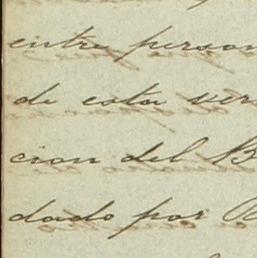 entre person
de esta ver
cion del B
dado por